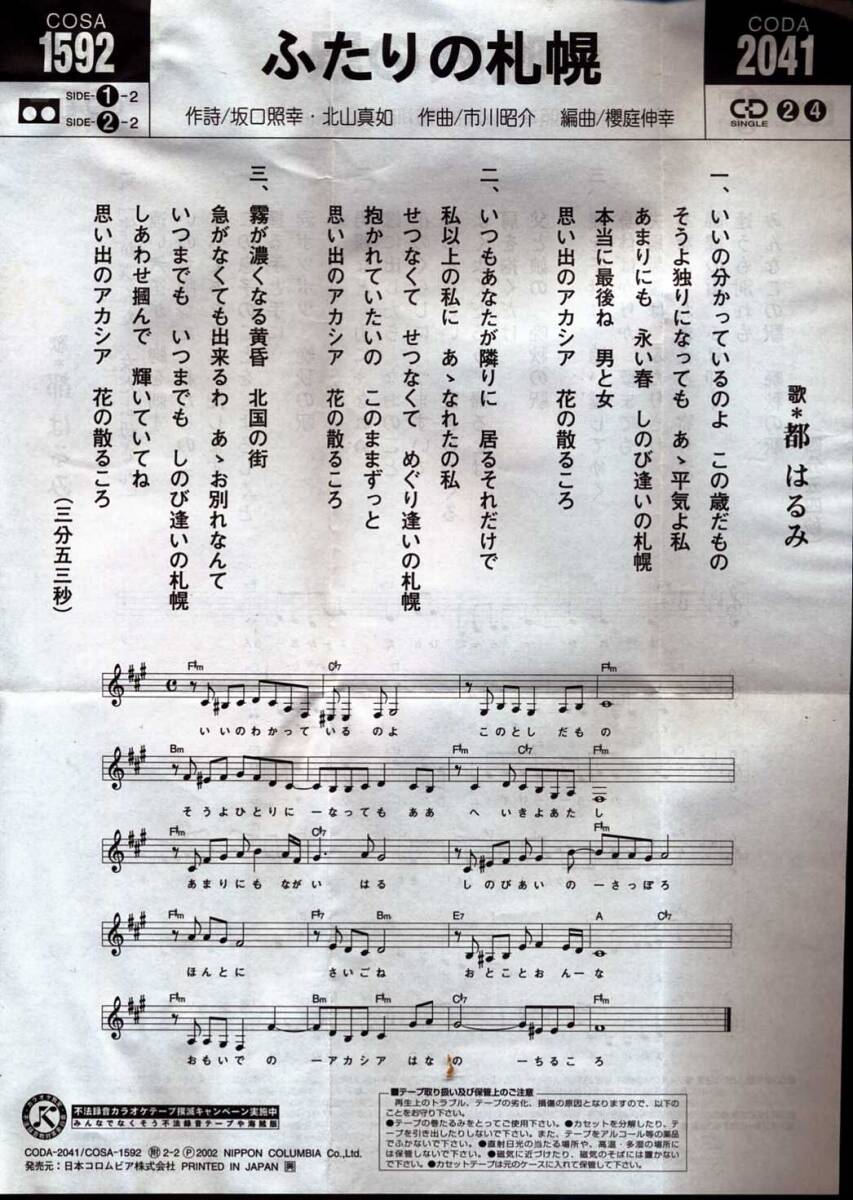 COSA
1592
SIDE-❶-2
SIDE-❷-2
ふたりの札幌
作詩/坂口照幸・北山真如　作曲/市川昭介　編曲/櫻庭伸幸
CODA
2041
CD SINGLE ❷ ❹
歌*都 はるみ
一、いいの分かっているのよ　この歳だもの
そうよ独りになっても　あゝ平気よ私
あまりにも　永い春　しのび逢いの札幌
本当に最後ね　男と女
思い出のアカシア　花の散るころ
二、いつもあなたが隣りに　居るそれだけで
私以上の私に　あゝなれたの私
せつなくて　せつなくて　めぐり逢いの札幌
抱かれていたいの　このままずっと
思い出のアカシア　花の散るころ
三、霧が濃くなる黄昏　北国の街
急がなくても出来るわ　あゝお別れなんて
いつまでも　いつまでも　しのび逢いの札幌
しあわせ掴んで　輝いていてね
思い出のアカシア　花の散るころ
（三分五三秒）
F♯m C♯7 F♯m
いいのわかって いるのよ このとし だもの
Bm F♯m C♯7 F♯m
そうよひとりに ーなっても ああ へ いきよあた し
F♯m C♯7 F♯m
あまりにも ながい はる しのびあい の ーさっぽろ
F♯m F♯7 Bm E7 A C♯7
ほんとに さいごね おとことおんーな
F♯m Bm F♯m C♯7 F♯m
おもいで の ーアカシア はな の ーちるこ ろ
不法録音カラオケテープ撲滅キャンペーン実施中
みんなでなくそう不法録音テープや海賊版
CODA-2041/COSA-1592 附 2-2 Ⓟ 2002 NIPPON COLUMBIA Co.,Ltd.
発売元：日本コロムビア株式会社 PRINTED IN JAPAN
■テープ取り扱い及び保管上のご注意
再生上のトラブル、テープの劣化、損傷の原因となりますので、以下の
ことをお守り下さい。
●テープの巻たるみをとってご使用下さい。●カセットを分解したり、テ
ープを引き出したりしないで下さい。また、テープをアルコール等の薬品
でふかないで下さい。●直射日光の当たる場所や、高温・多湿の場所に
は保管しないで下さい。●磁気に近づけたり、磁気のそばには置かない
で下さい。●カセットテープは元のケースに入れて保管して下さい。